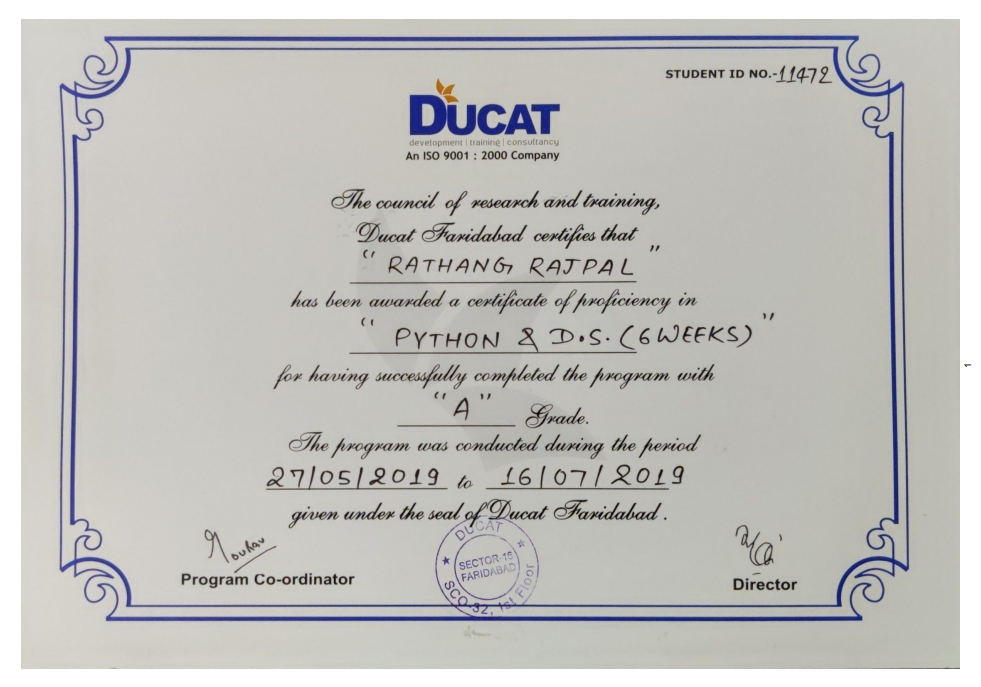 STUDENT ID NO.-11472
DUCAT
development | training | consultancy
An ISO 9001 : 2000 Company
The council of research and training,
Ducat Faridabad certifies that
" RATHANG RAJPAL "
has been awarded a certificate of proficiency in
" PYTHON & D.S. (6 WEEKS) "
for having successfully completed the program with
"A" Grade.
The program was conducted during the period
27/05/2019 to 16/07/2019
given under the seal of Ducat Faridabad.
DUCAT
SECTOR-16
FARIDABAD
SCO-32, 1st Floor
Program Co-ordinator
Director
1